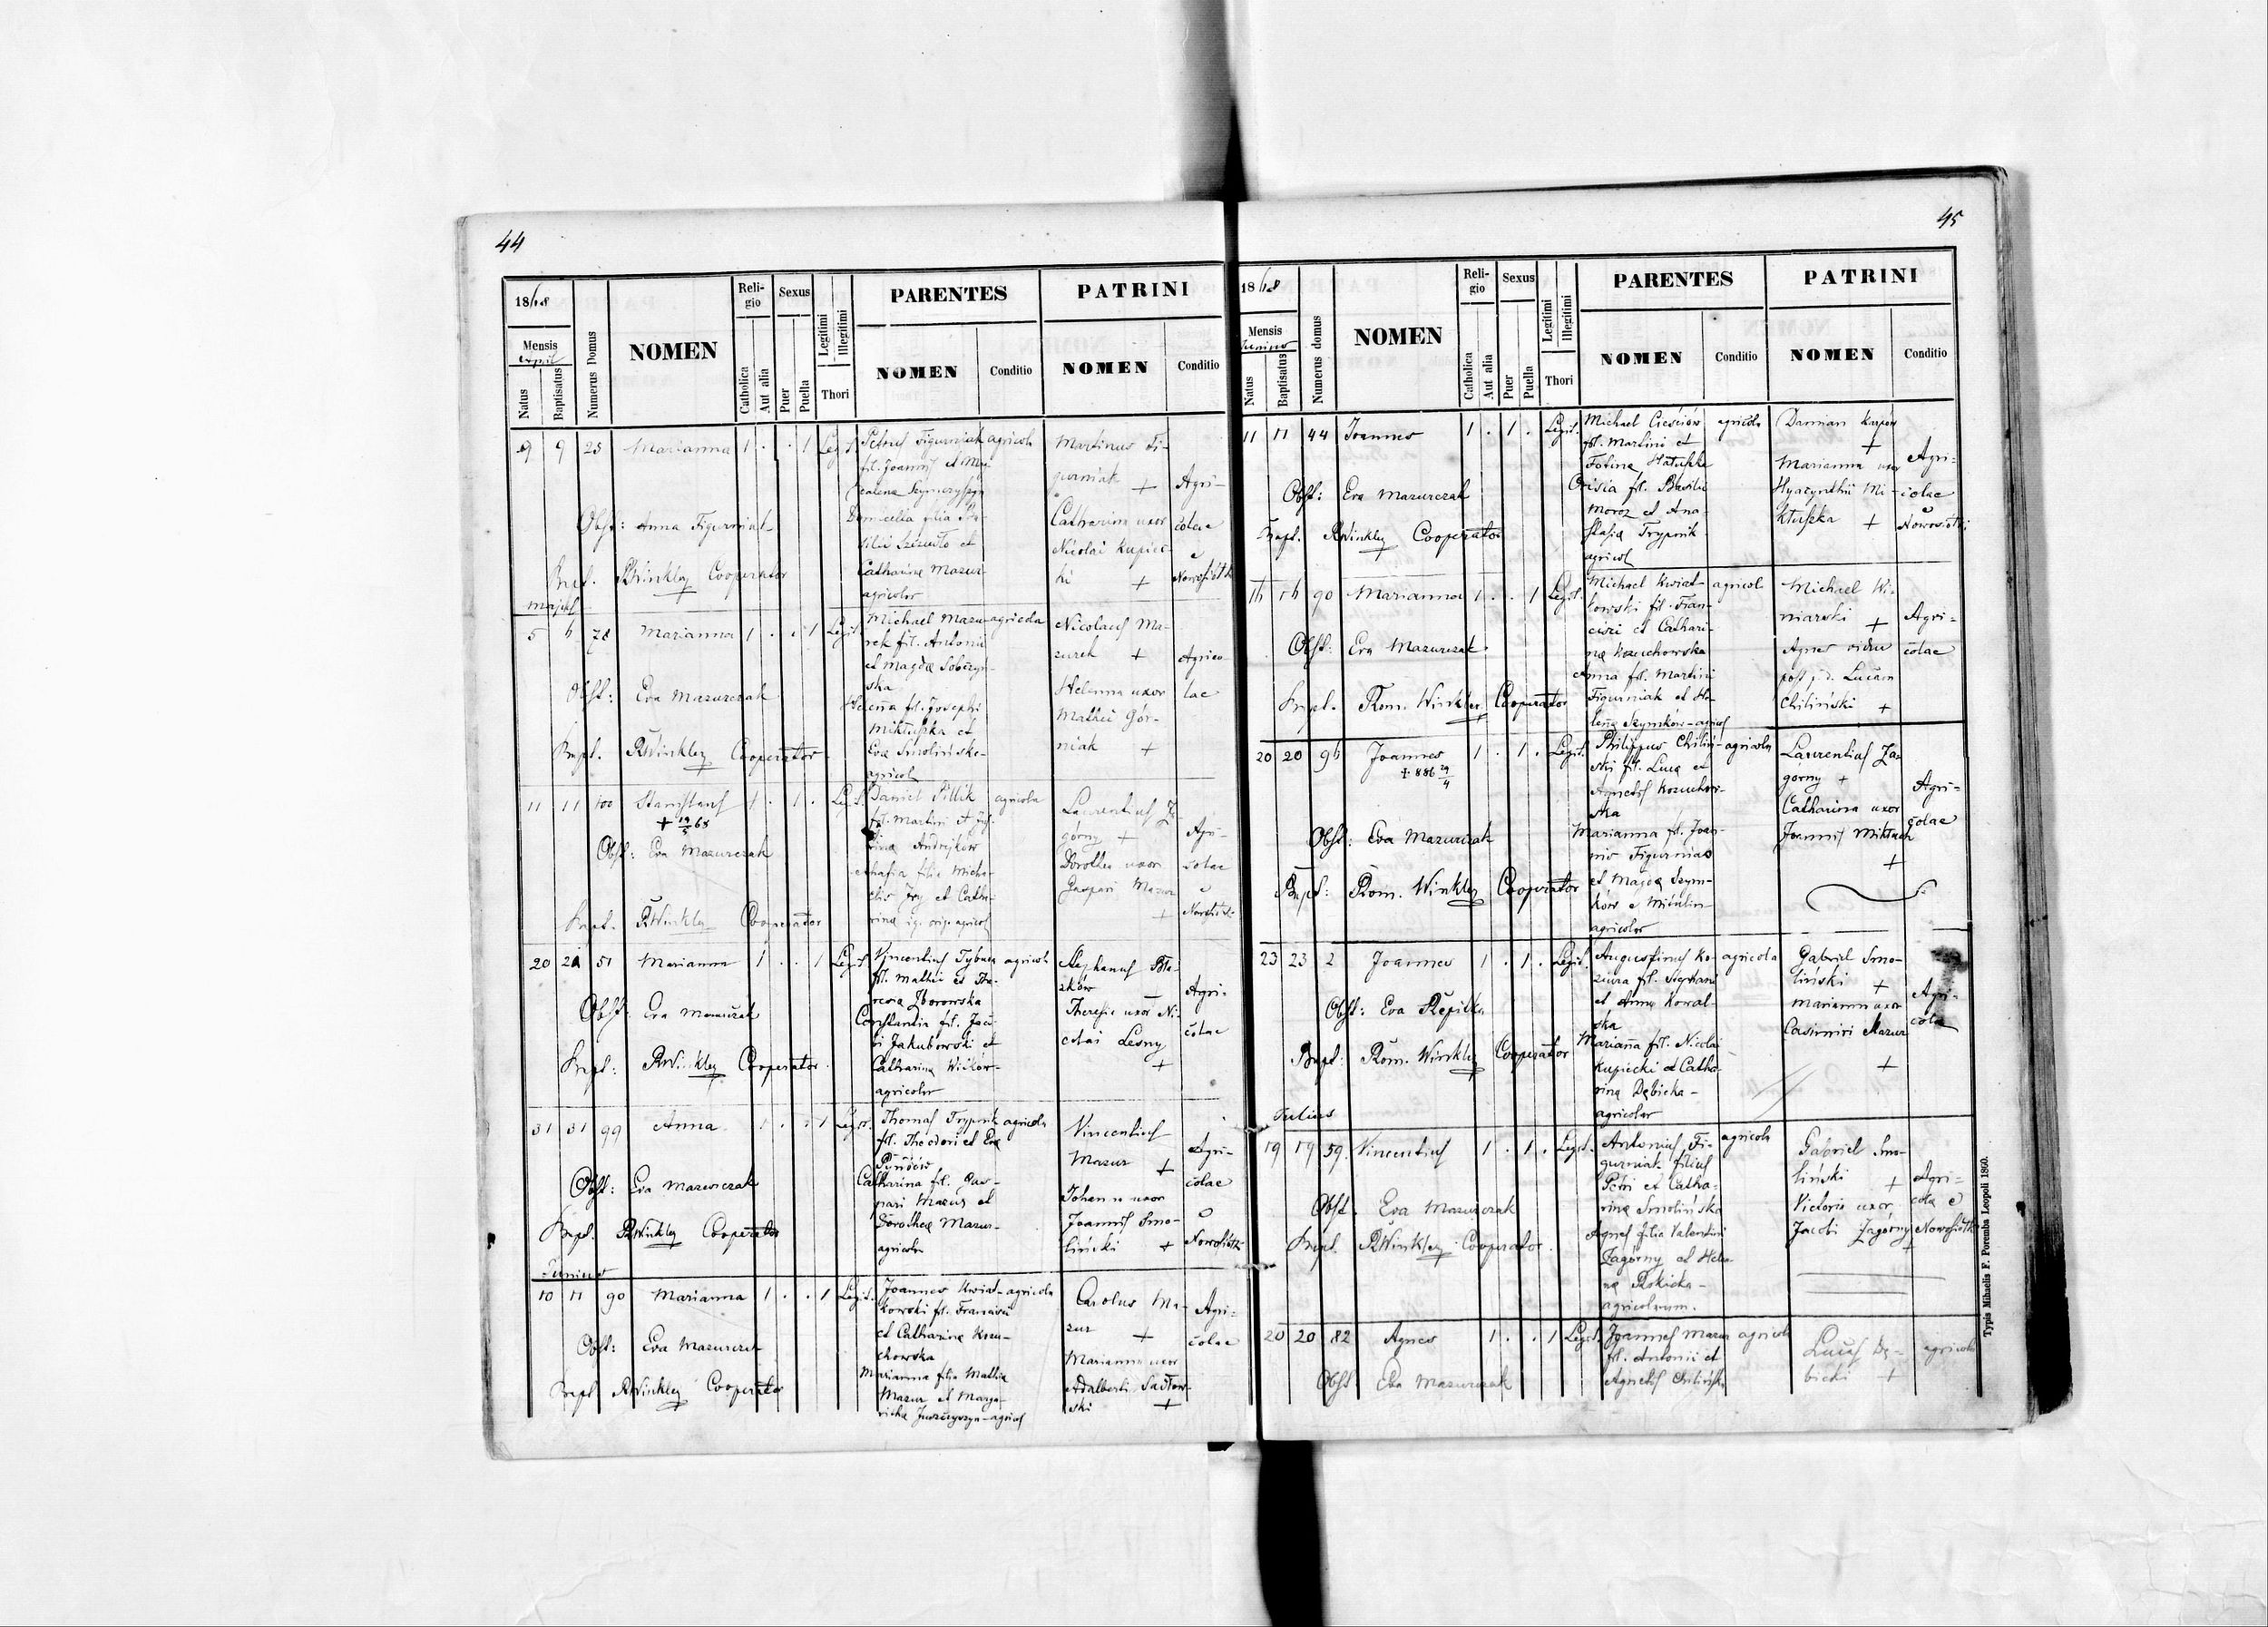 44
1868
Mensis
April
Natus
Baptisatus
Numerus Domus
NOMEN
Religio
Catholica
Aut alia
Sexus
Puer
Puella
Legitimi
Illegitimi
Thori
PARENTES
NOMEN
Conditio
PATRINI
NOMEN
Conditio
9 9 23 Marianna 1 . . 1 Legit.
Obst: Anna Figurniak
Bapt. RWinkler Cooperator
Petrus Figurniak agricola
fil. Joannis et
Domicella filia
et
Catharina Mazur
agricolar
Martinus Fi-
gurniak +
Catharina uxor
Nicolai Kupiec-
ki +
Agri-
colae
e
5 6 78 Marianna 1 . . 1 Legit.
Obst: Eva Mazurczak
Bapt. RWinkler Cooperator
Michael Mazu- agricola
rek fil. Antonii
et Magdae Sobczyn-
ska
Helena fil. Josephi
Miktuszka et
Eva Smolinska-
agricol
Nicolaus Ma-
zurek +
Helenna uxor
Mathei Gór-
niak +
Agrico
lae
11 11 100 Stanislaus 1 . 1 . Legit.
Obst: Eva Mazurczak
Bapt. RWinkler Cooperator
Daniel Pillik agricola
fil. Martini et
Andrejków
filia Micha-
elis et Catha-
rina
Laurentius Za
górny +
Dorothea uxor
Gaspari Mazur
+
Agri-
colae
e
20 21 51 Marianna 1 . . 1 Legit.
Obst: Eva Mazurczak
Bapt: RWinkler Cooperator
Vincentius agricola
fil. Mathei et The-
resia Zborowska
Constantia fil. Jaco-
bi Jakubowski et
Catharina Wickow-
agricolar
Stephanus Bla-
zków
Theresia uxor Ni-
colai Lesny
+
Agri-
colae
31 31 99 Anna 1 . . 1 Legit.
Obst: Eva Mazurczak
Bapt. RWinkler Cooperator
Thomas Trypnik agricola
fil. Theodori et Eva
Catharina fil. Gas-
pari Mazur et
Dorothea Mazur-
agricolar
Vincentius
Mazur +
Johanna uxor
Joannis Smo-
liński +
Agri-
colae
e
Junius
10 11 90 Marianna 1 . . 1 Legit.
Obst: Eva Mazurczak
Bapt RWinkler Cooperator
Joannes Kwiat- agricola
kowski fil. Francisci
et Catharina Kozu-
chowska
Marianna filia Mathia
Mazur et Marga-
Carolus Ma-
zur +
Marianna uxor
Adalberti Sadow-
ski +
Agri-
colae
45
1868
Mensis
Junius
Natus
Baptisatus
Numerus domus
NOMEN
Religio
Catholica
Aut alia
Sexus
Puer
Puella
Legitimi
Illegitimi
Thori
PARENTES
NOMEN
Conditio
PATRINI
NOMEN
Conditio
11 11 44 Joannes 1 . 1 . Legit.
Obst: Eva Mazurczak
Bapt. RWinkler Cooperator
Michael Cieściów agricola
fil. Martini et
Fotina Hatuszka
fil. Basilii
Moroz et Ana-
stasia Trypnik
agricol
Damian Karpów
+
Marianna uxor
Hyacynthii Mi-
ktuszka +
Agri-
colae
e
16 16 90 Marianna 1 . . 1 Legit.
Obst: Eva Mazurczak
Bapt. Rom. Winkler Cooperator
Michael Kwiat- agricol
kowski fil. Fran-
cisci et Cathari-
na Kozuchowska
Anna fil. Martini
Figurniak et He-
lena Szymków-agricol
Michael Wi-
niarski +
Agnes vidua
post p. d. Lucam
Chiliński +
Agri-
colae
20 20 96 Joannes 1 . 1 . Legit.
+ 886 29/4
Obst: Eva Mazurczak
Bapt: Rom. Winkler Cooperator
Philippus Chiliń- agricola
ski fil. Luca et
Agnetis Kozuchow-
ska
Marianna fil. Joan-
nis Figurniak
et Magda Szym-
ków e Miculin-
agricolar
Laurentius Za-
górny +
Catharina uxor
Joannis
+
Agri-
colae
23 23 2 Joannes 1 . 1 . Legit.
Obst: Eva Rępilka
Bapt: Rom. Winkler Cooperator
Augustinus Ko- agricola
ziura fil. Stephani
et Anna Kowal-
ska
Marianna fil. Nicolai
Kupiecki et Catha-
rina Dębicka-
agricolar
Gabriel Smo-
liński +
Marianna uxor
Casimiri Mazur
+
Agri-
cola
Julius
19 19 59 Vincentius 1 . 1 . Legit.
Obst. Eva Mazurczak
Bapt. RWinkler Cooperator
Antonius Fi- agricola
gurniak filius
Petri et Catha-
rina Smolińska
Agnes filia Valentini
Zagórny et Hele-
na Rokicka-
agricolarum.
Gabriel Smo-
liński +
Victoria uxor
Jacobi Zagórny
+
Agri-
cola e
20 20 82 Agnes 1 . . 1 Legit.
Obst. Eva Mazurczak
Joannes Mazur agricola
fil. Antonii et
Agnetis Chilińska
Lucas Dę-
bicki +
agricola
Typis Mihaelis F. Poremba Leopoli 1860.